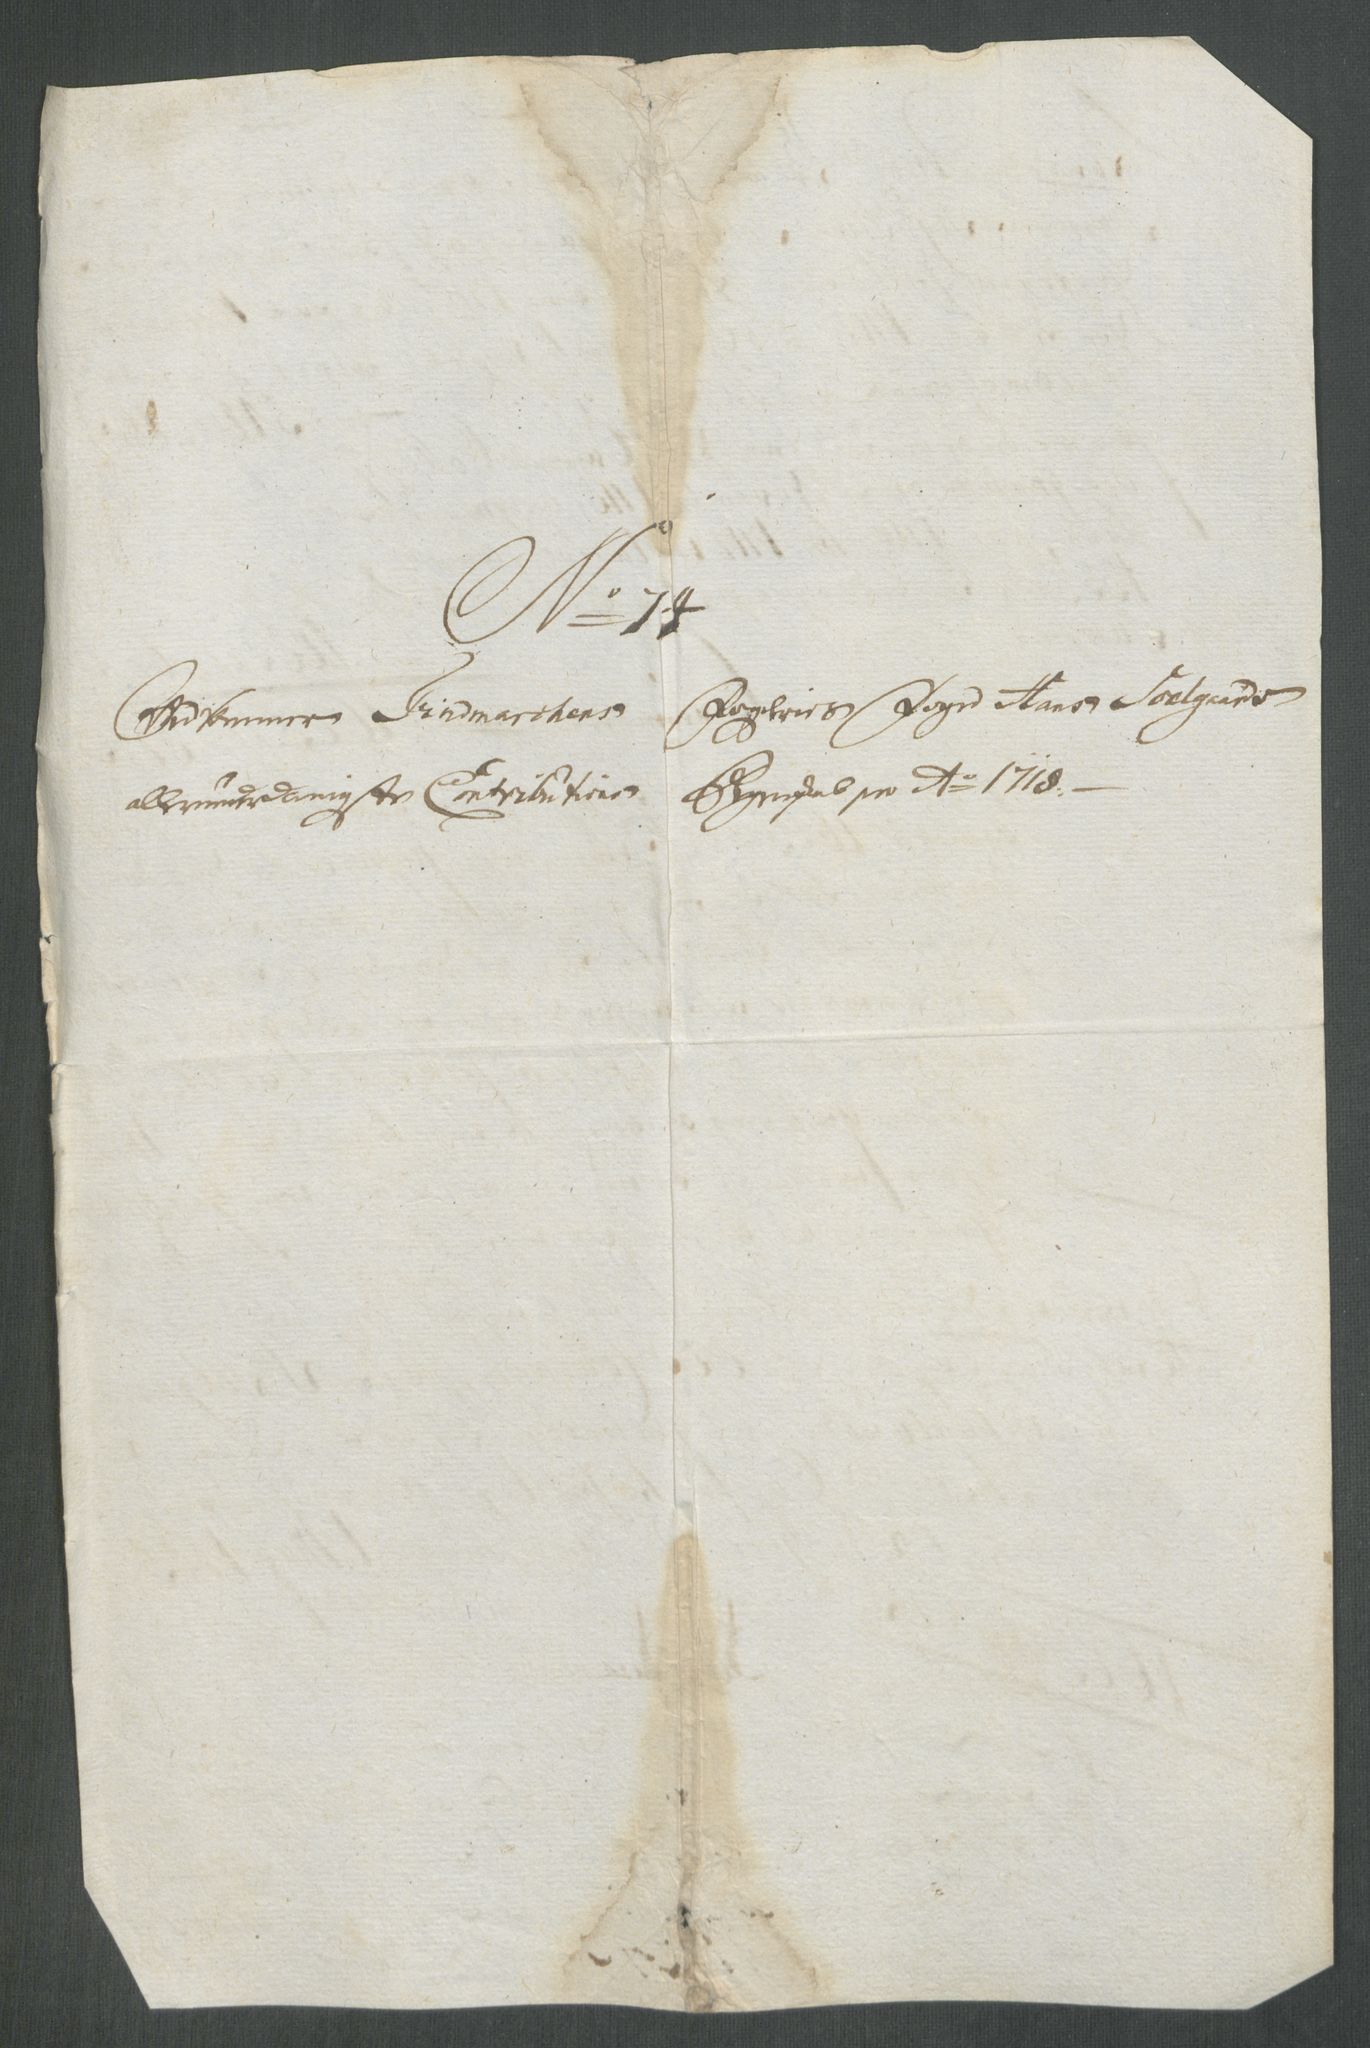 No 74
Findmarchens Fogderies Fogd Hans Soelgaards
allerunderdanigste Contributions Regenskab pro Ao 1718.